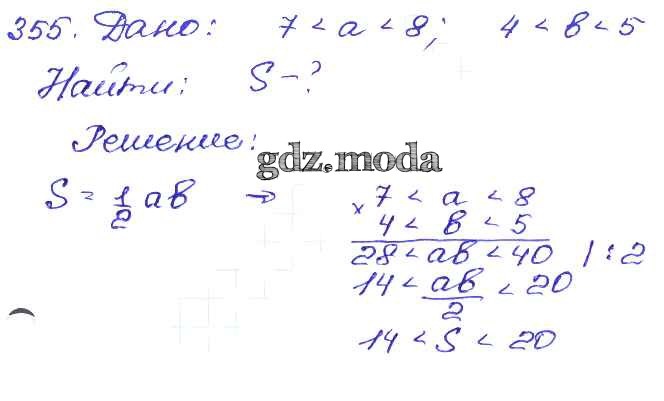 355. Дано: 7 < a < 8; 4 < b < 5
Найти: S - ?
Решение:
gdz.moda
S = 1/2 ab → × 7 < a < 8
4 < b < 5
28 < ab < 40 | : 2
14 < ab/2 < 20
14 < S < 20